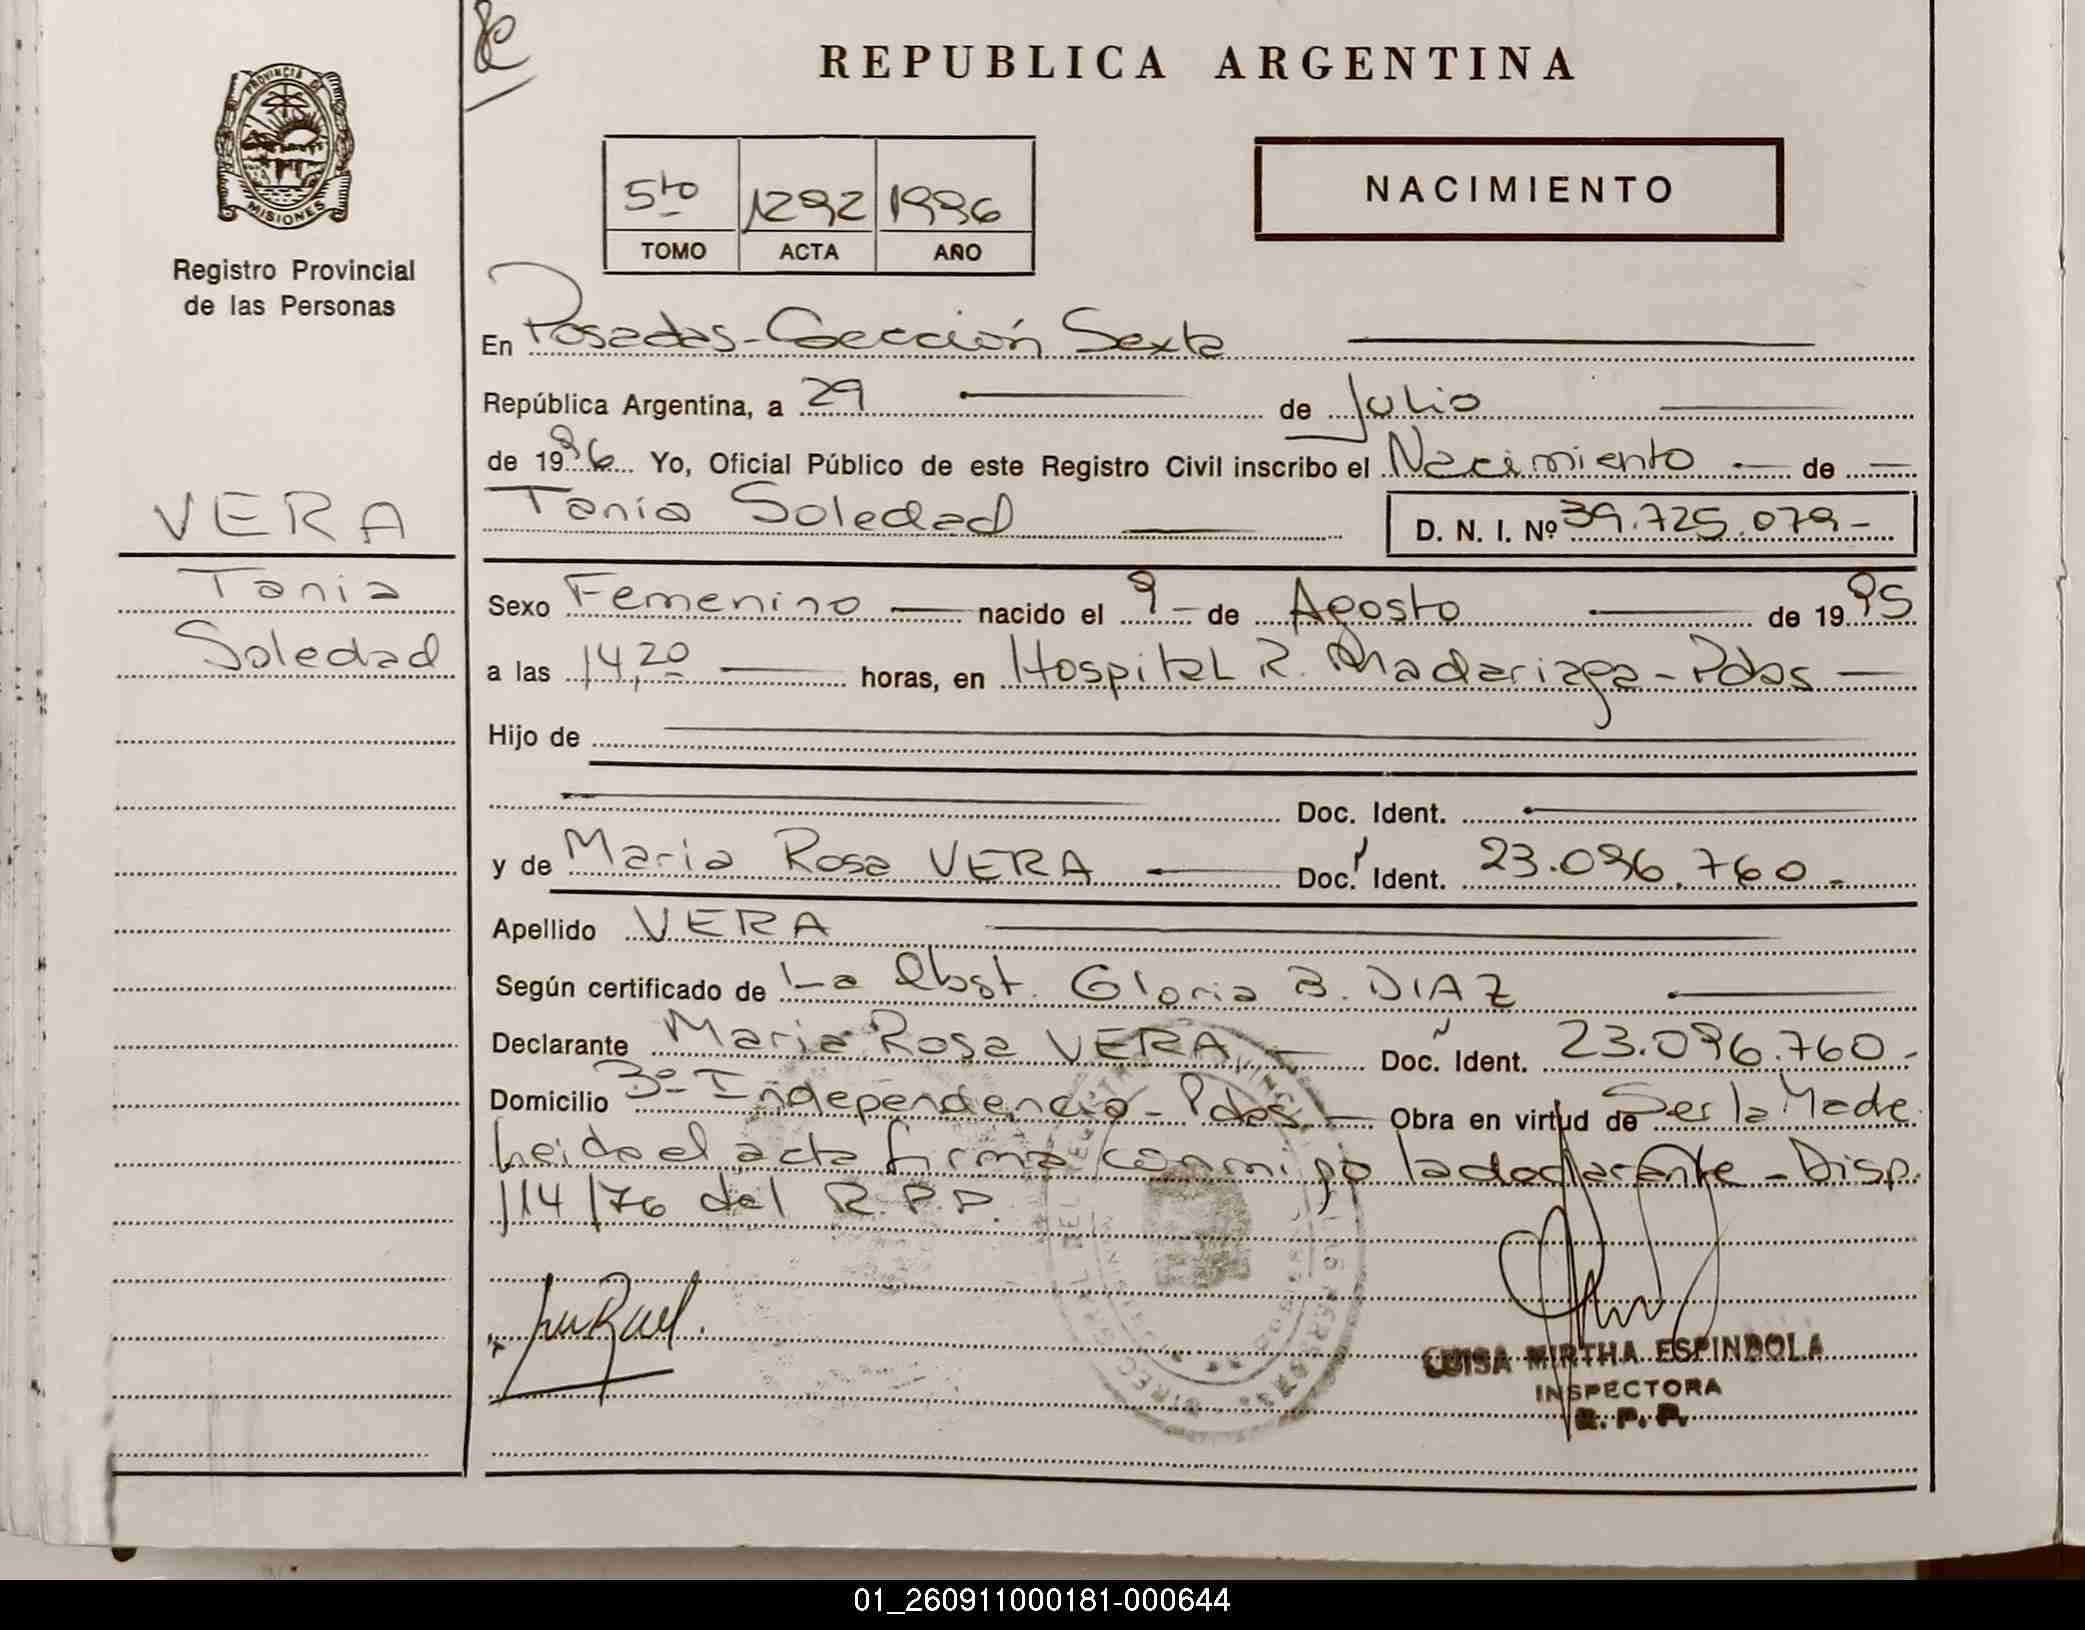 REPUBLICA ARGENTINA
PROVINCIA DE
MISIONES
Registro Provincial
de las Personas
5to 1292 1996
TOMO ACTA AÑO
NACIMIENTO
En Posadas - Sección Sexta
República Argentina, a 29 de Julio
de 1996 Yo, Oficial Público de este Registro Civil inscribo el Nacimiento de
Tania Soledad D. N. I. Nº 39.725.079-
VERA
Tania
Soledad
Sexo Femenino nacido el 9 - de Agosto de 1995
a las 14,20 horas, en Hospital R. Madariaga - Pdas
Hijo de
Doc. Ident.
y de Maria Rosa VERA Doc. Ident. 23.096.760.-
Apellido VERA
Según certificado de La Obst. Gloria B. DIAZ
Declarante Maria Rosa VERA Doc. Ident. 23.096.760.-
Domicilio 3º Independencia - Pdas - Obra en virtud de Ser la Madre.
Leida el acta firma conmigo la declarante - Disp.
114/76 del R.P.P.
LUISA MIRTHA ESPINDOLA
INSPECTORA
R. P. P.
01_260911000181-000644